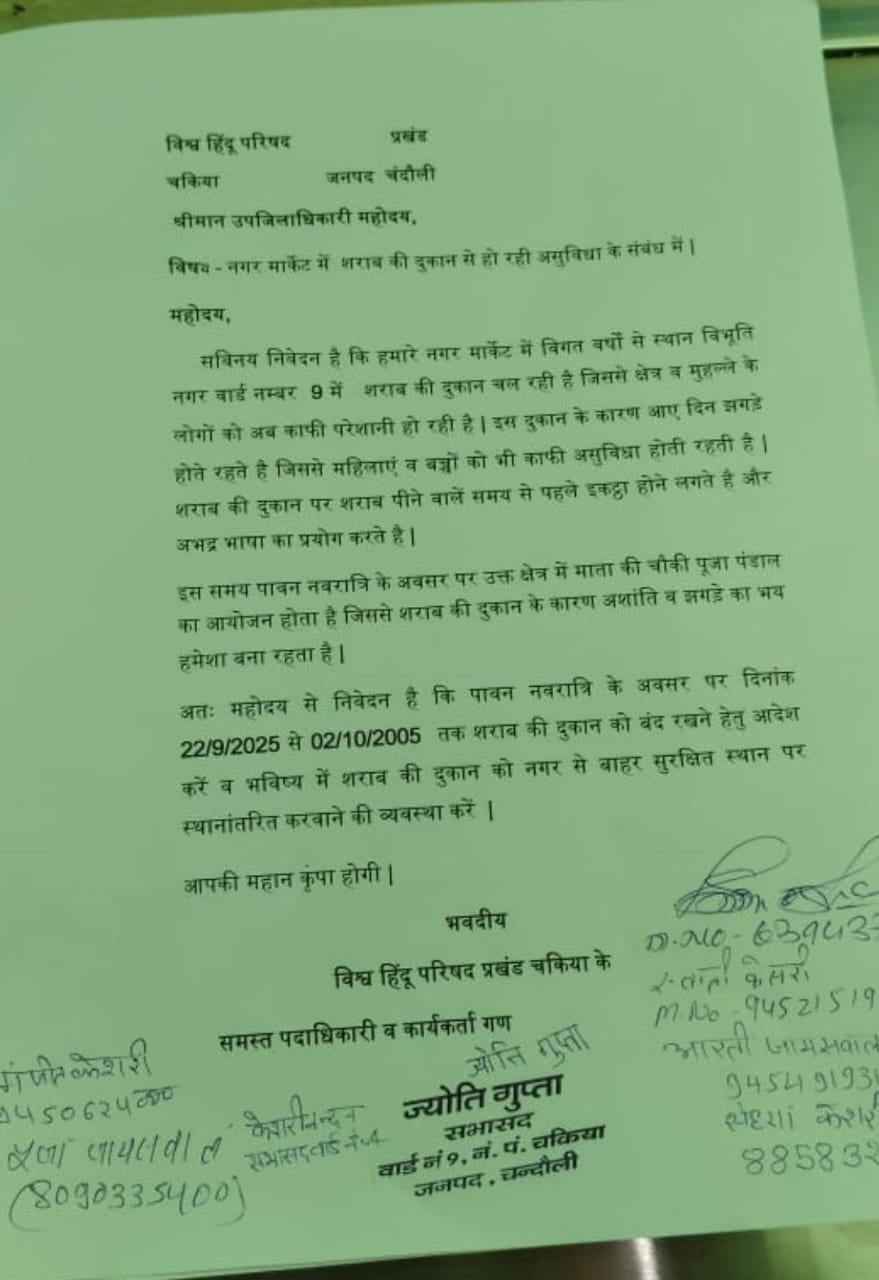 विश्व हिंदू परिषद प्रखंड
चकिया जनपद चंदौली
श्रीमान उपजिलाधिकारी महोदय,
विषय - नगर मार्केट में शराब की दुकान से हो रही असुविधा के संबंध में |
महोदय,
सविनय निवेदन है कि हमारे नगर मार्केट में विगत वर्षों से स्थान विभूति
नगर वार्ड नम्बर 9 में शराब की दुकान चल रही है जिससे क्षेत्र व मुहल्ले के
लोगों को अब काफी परेशानी हो रही है | इस दुकान के कारण आए दिन झगड़े
होते रहते है जिससे महिलाएं व बच्चों को भी काफी असुविधा होती रहती है |
शराब की दुकान पर शराब पीने वालें समय से पहले इकट्ठा होने लगते है और
अभद्र भाषा का प्रयोग करते है |
इस समय पावन नवरात्रि के अवसर पर उक्त क्षेत्र में माता की चौकी पूजा पंडाल
का आयोजन होता है जिससे शराब की दुकान के कारण अशांति व झगड़े का भय
हमेशा बना रहता है |
अतः महोदय से निवेदन है कि पावन नवरात्रि के अवसर पर दिनांक
22/9/2025 से 02/10/2005 तक शराब की दुकान को बंद रखने हेतु आदेश
करें व भविष्य में शराब की दुकान को नगर से बाहर सुरक्षित स्थान पर
स्थानांतरित करवाने की व्यवस्था करें |
आपकी महान कृंपा होगी |
भवदीय
विश्व हिंदू परिषद प्रखंड चकिया के
समस्त पदाधिकारी व कार्यकर्ता गण
ज्योति गुप्ता
ज्योति गुप्ता
सभासद
वार्ड नं 9, नं. पं. चकिया
जनपद . चन्दौली
केशरीनन्दन
सभासद वार्ड
केशरी
जायसवाल
(8090335400)
M.No - 639437
स्वाती केसरी
M.No - 94521519
आरती जायसवाल
945491931
संध्या केशरी
885832